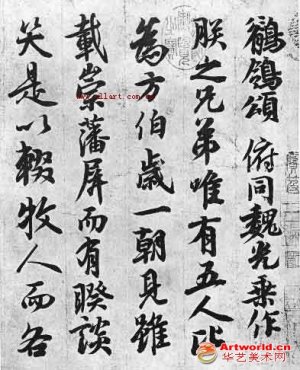 鶺鴒頌 俯同魏光乗作
朕之兄弟唯有五人比
為方伯歲一朝見雖
載崇藩屏而有睽談
笑是以輟牧人而各
www.llart.com
Artworld.cn
华艺美术网